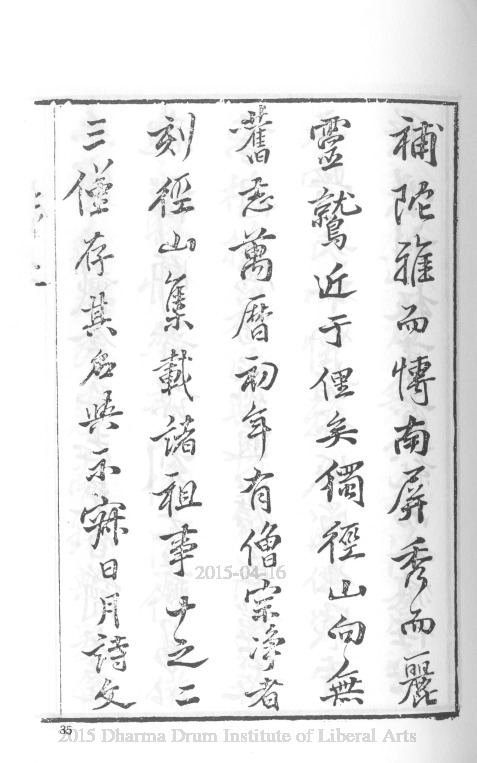 補陀雅而博南屏秀而麗
靈鷲近于俚矣獨徑山向無
舊志萬曆初年有僧宗净者
刻徑山集載諸祖事十之二
三僅存其名與示寂日月詩文
2015-04-16
35
2015 Dharma Drum Institute of Liberal Arts